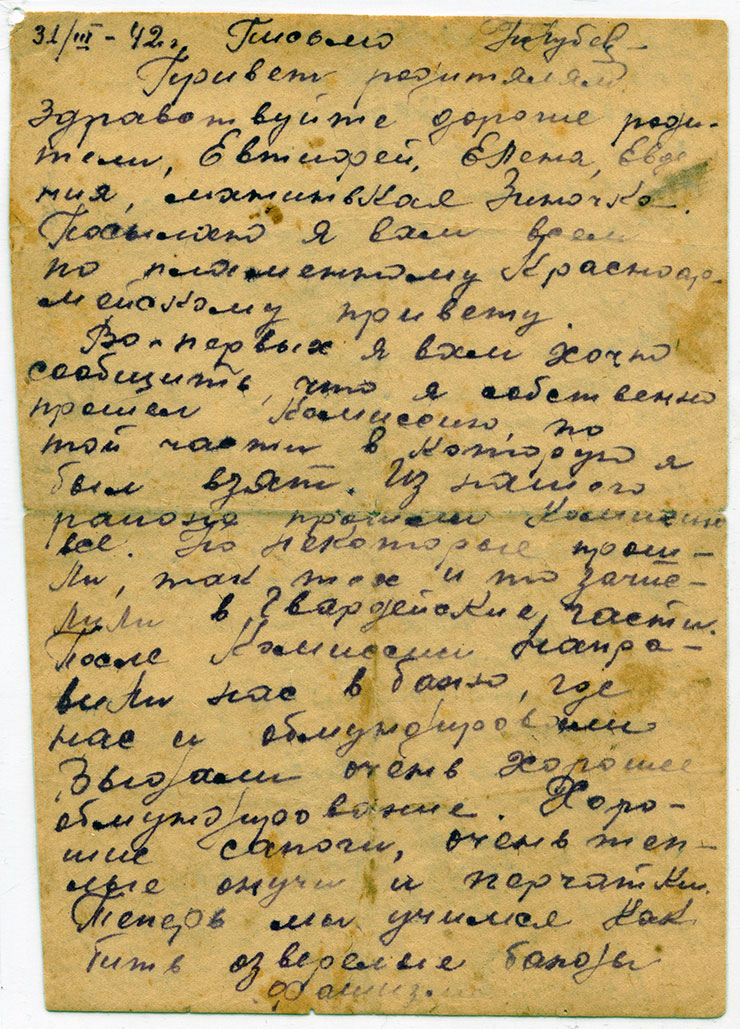 31/III - 42 г. Письмо
Привет родителям.
Здравствуйте дорогие роди-
тели, Евтифей, Елена, Евдо
кия, маленькая Зиночка.
Посылаю я вам всем
по пламенному Красноар-
мейскому привету.
Во-первых я вам хочю
сообщить, что я собственно
прошел комиссию, по
той части в которую я
был взят. Из нашего
района прошли комиссию
все. Но некоторые прош-
ли, так тех и то зачис-
лили в Гвардейские части.
После комиссии напра-
вили нас в баню, где
нас и обмундировали
Выдали очень хорошее
обмундирование. Хоро-
шие сапоги, очень теп-
лые онучи и перчатки.
Теперь мы учимся как
бить озверелые банды
фашизма